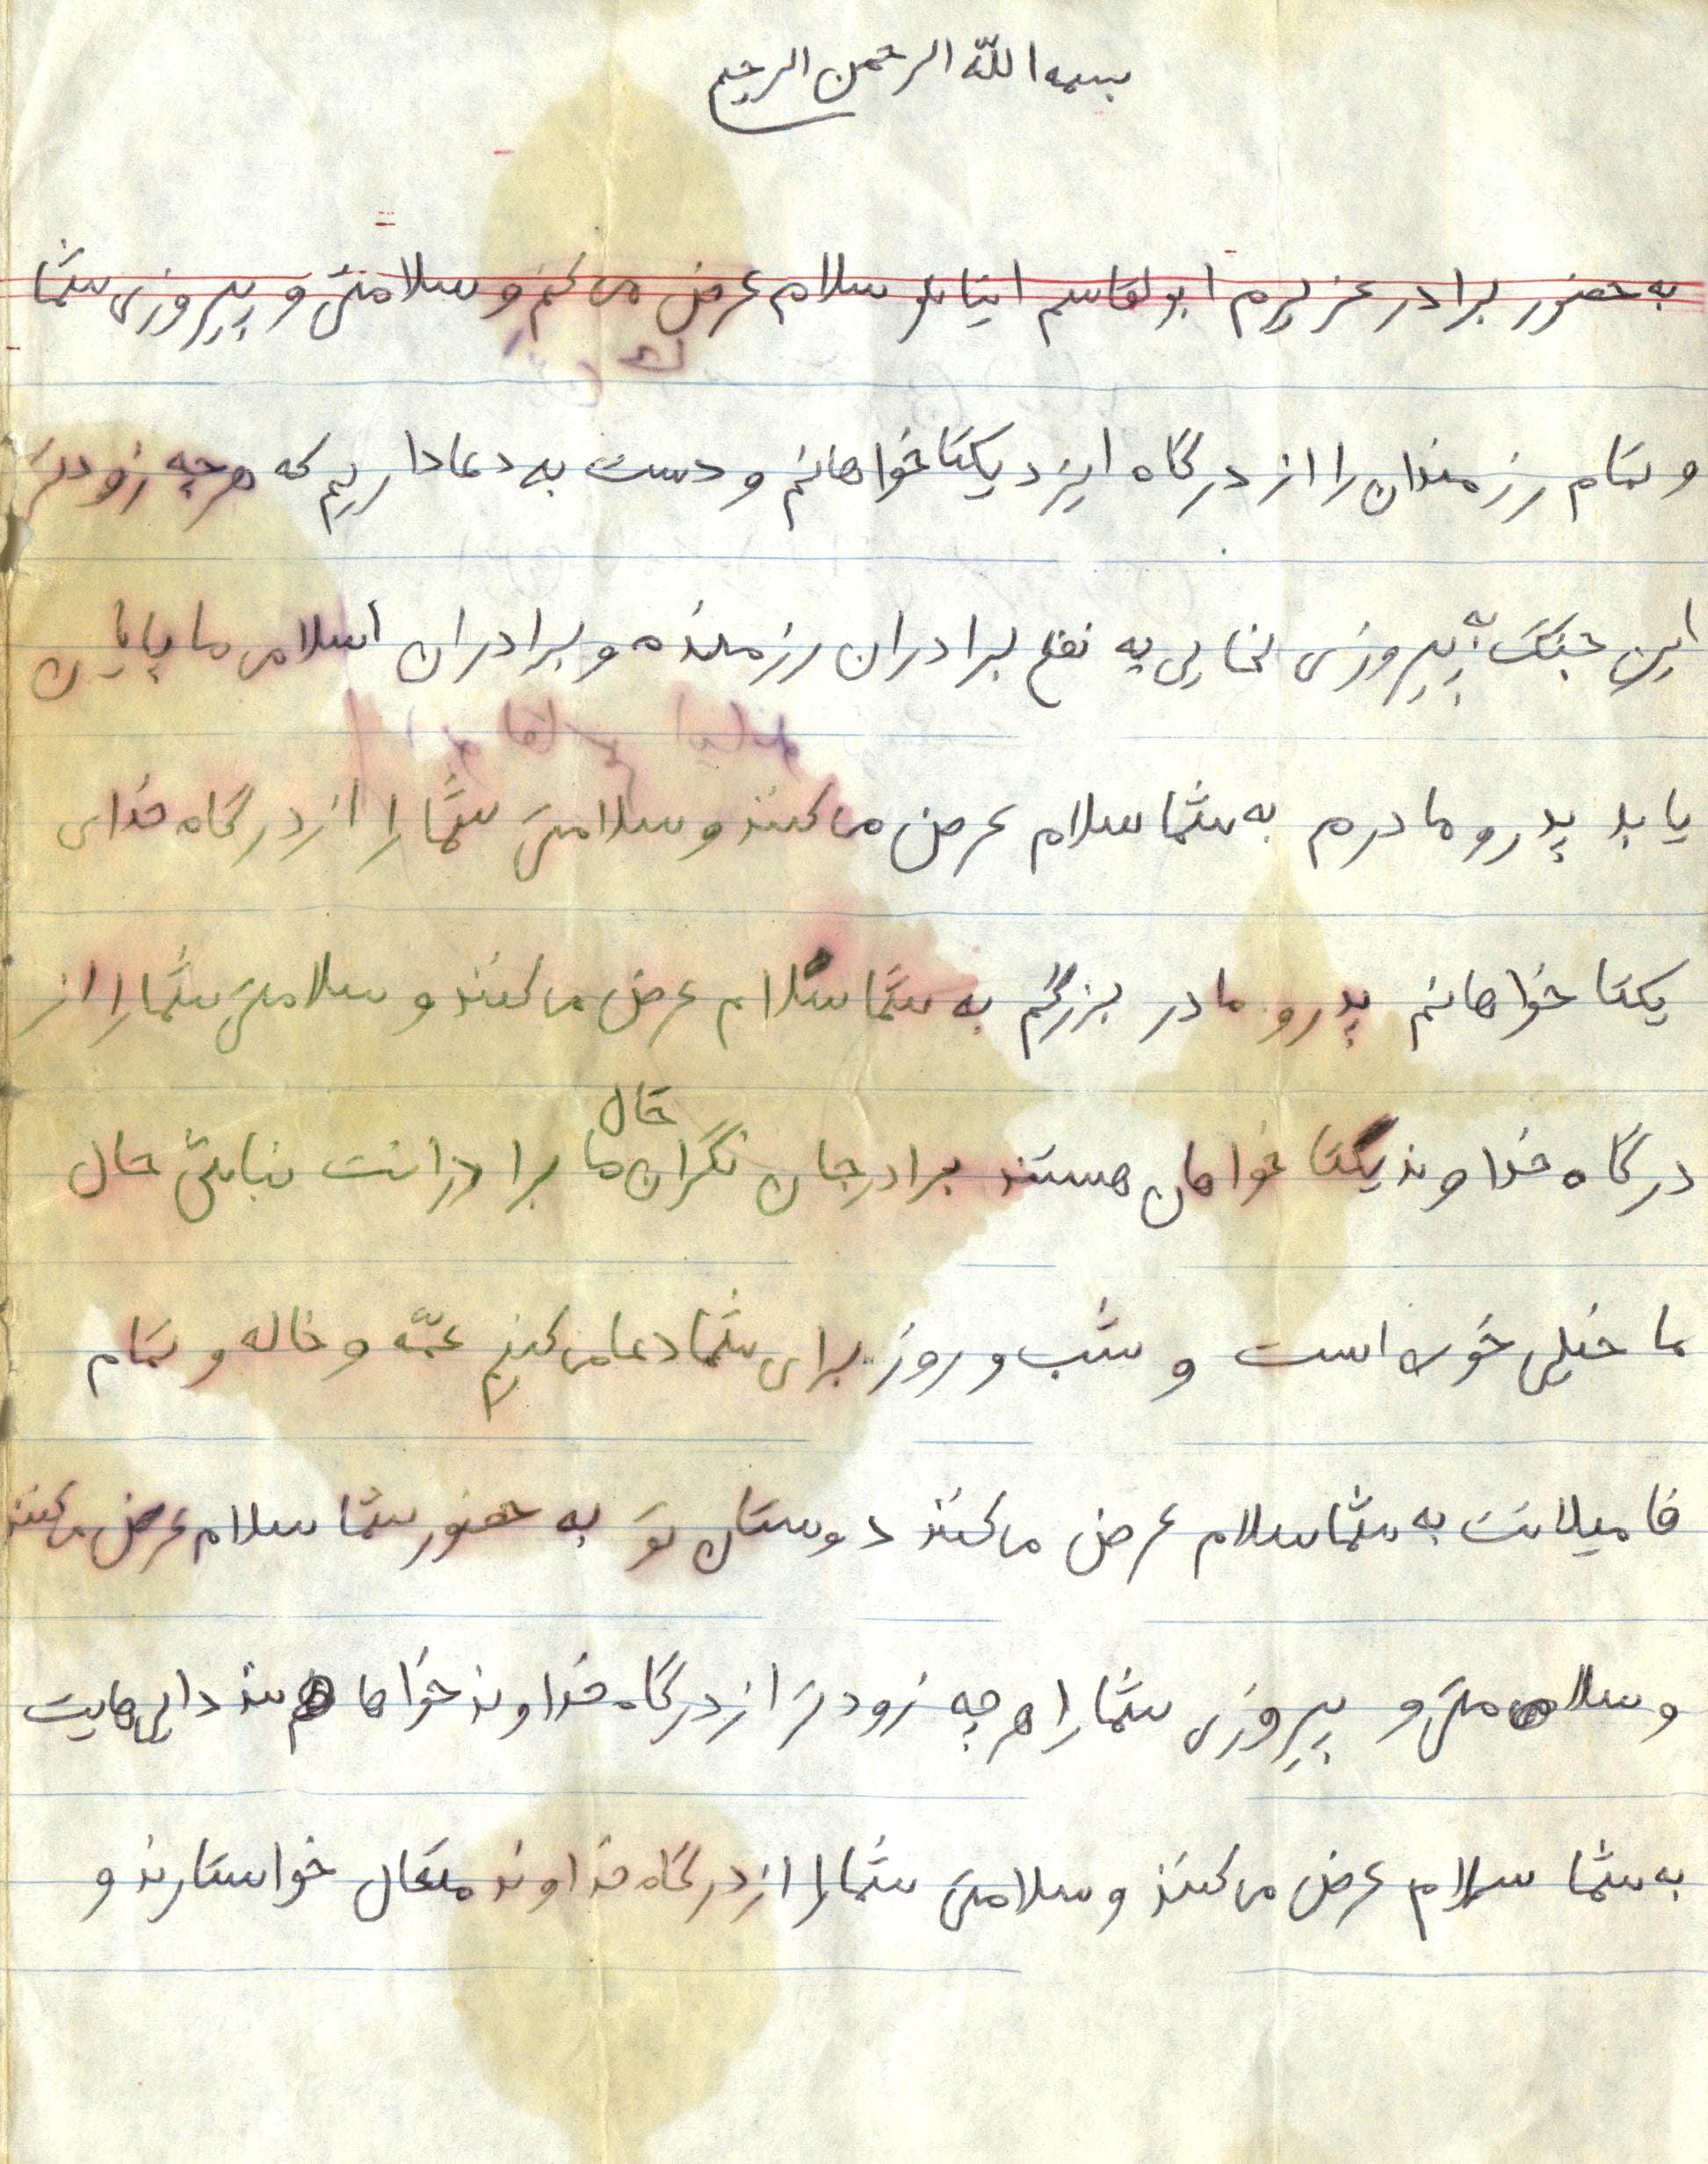 بسمه الله الرحمن الرحیم
به حضور برادر عزیزم ابولقاسم اینانلو سلام عرض می کنم و سلامتی و پیروزی شما
و تمام رزمندان را از درگاه ایزد یکتا خواهانم و دست به دعا داریم که هرچه زودتر
این جنگ به پیروزی نحایی به نفع برادران رزمنده و برادران اسلامی ما پایان
یابد پدر و مادرم به شما سلام عرض می کنند و سلامتی شما را از درگاه خدای
یکتا خواهانم پدر و مادر بزرگم به شما سلام عرض می کنند و سلامتی شما را از
درگاه خداوند یکتا خواهان هستند برادر جان نگران حال ما برادرانت نباشی حال
ما خیلی خوب است و شب و روز برای شما دعا می کنیم عمّه و خاله و تمام
فامیلانت به شما سلام عرض می کنند دوستان تو به حضور شما سلام عرض می کنند
و سلامتی و پیروزی شما را هرچه زودتر از درگاه خداوند خواهانند دایی هایت
به شما سلام عرض می کنند و سلامتی شما را از درگاه خداوند متعال خواستارند و